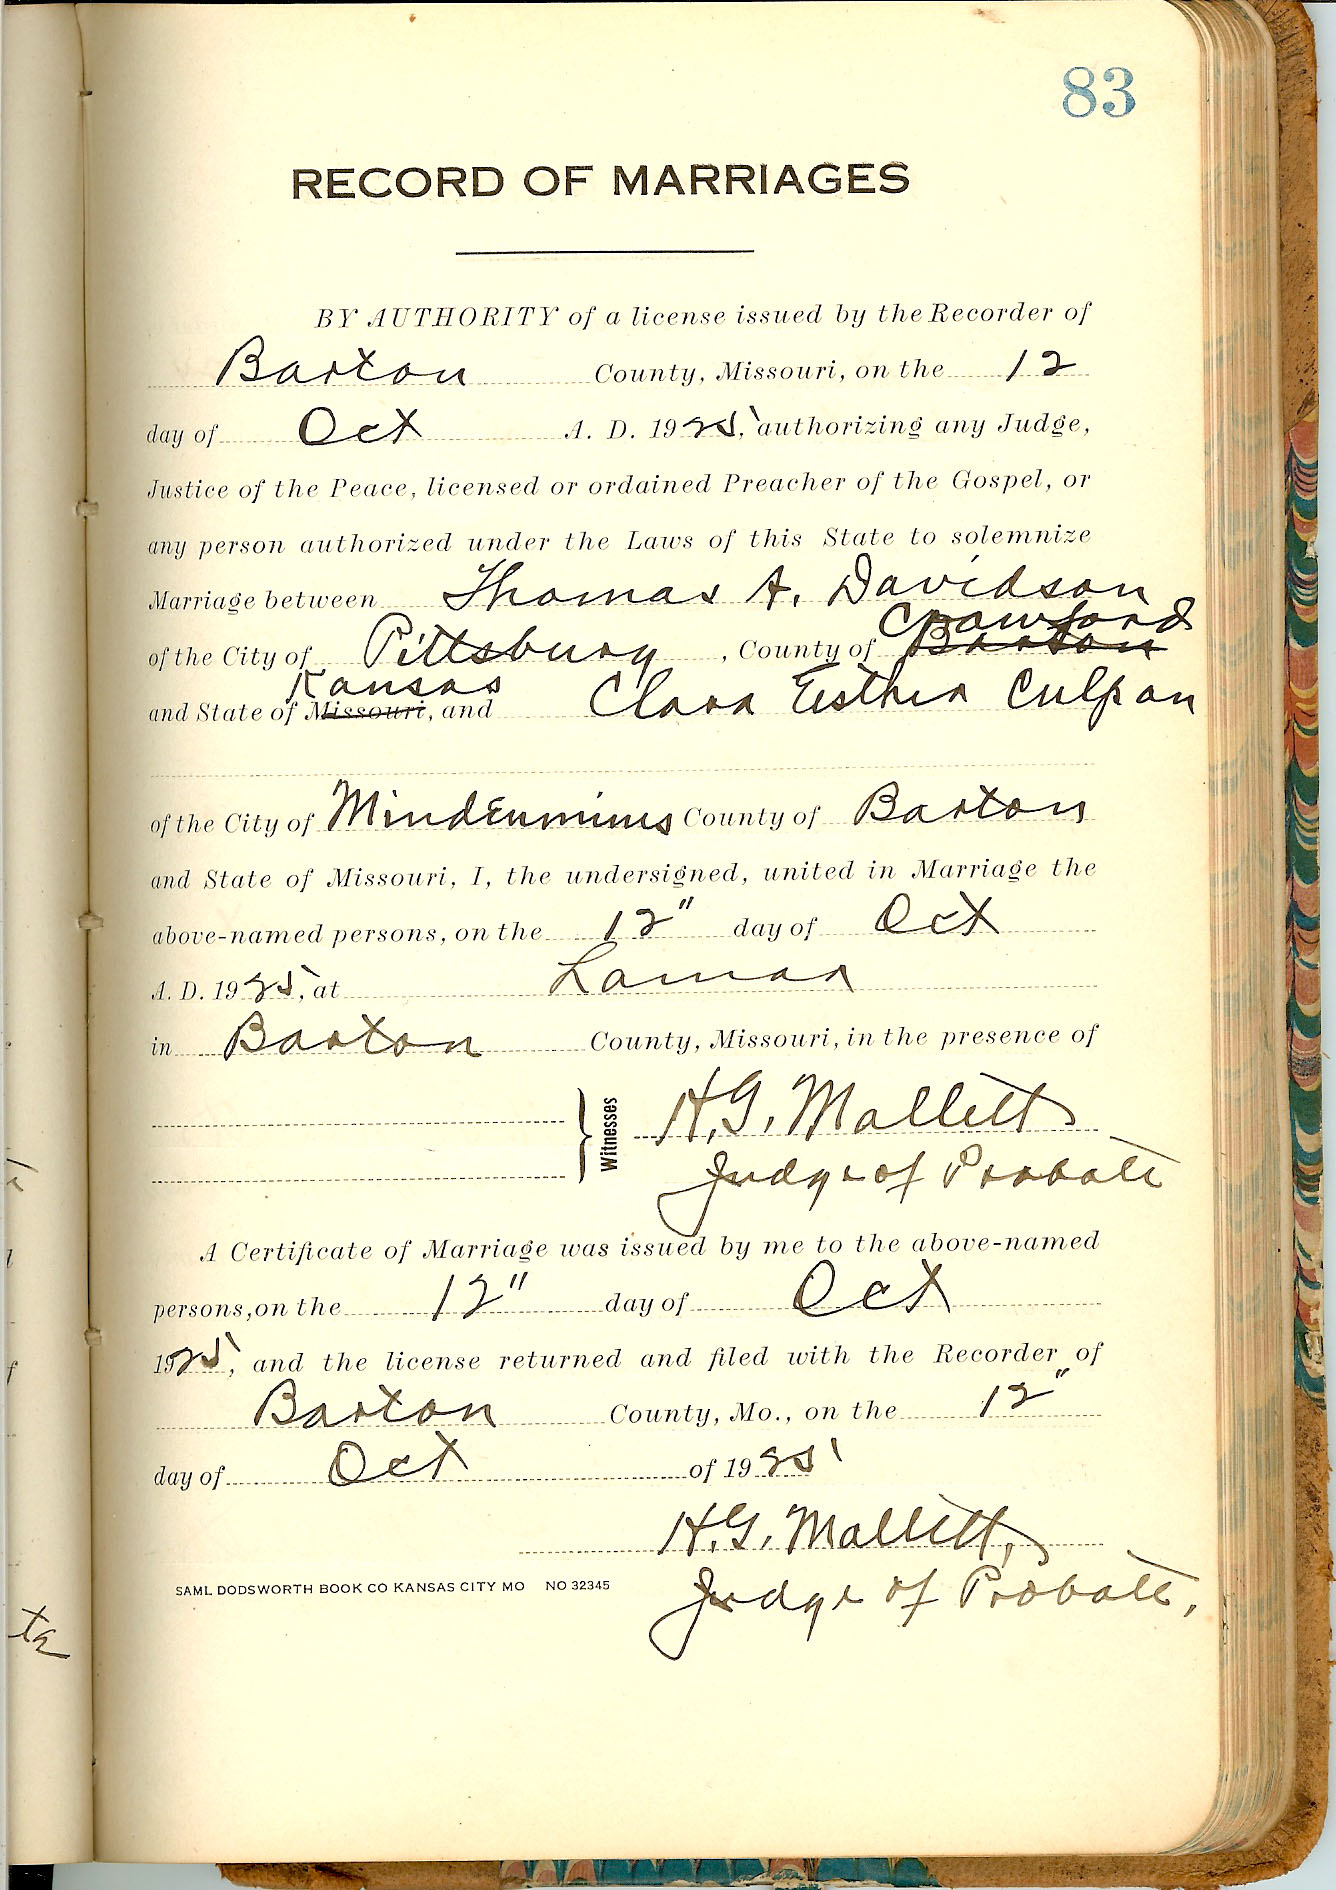 83
RECORD OF MARRIAGES
BY AUTHORITY of a license issued by the Recorder of
Barton County, Missouri, on the 12
day of Oct A. D. 1925, authorizing any Judge,
Justice of the Peace, licensed or ordained Preacher of the Gospel, or
any person authorized under the Laws of this State to solemnize
Marriage between Thomas A. Davidson
Crawford
of the City of Pittsburg, County of Barton
Kansas
and State of Missouri, and Clara Esther Culp an
of the City of Mindenmines County of Barton
and State of Missouri, I, the undersigned, united in Marriage the
above-named persons, on the 12" day of Oct
A. D. 1925, at Lamar
in Barton County, Missouri, in the presence of
Witnesses
H. G. Mallett
Judge of Probate
A Certificate of Marriage was issued by me to the above-named
persons, on the 12" day of Oct
1925, and the license returned and filed with the Recorder of
Barton County, Mo., on the 12"
day of Oct of 1925
H. G. Mallett,
SAML DODSWORTH BOOK CO KANSAS CITY MO NO 32345
Judge of Probate,